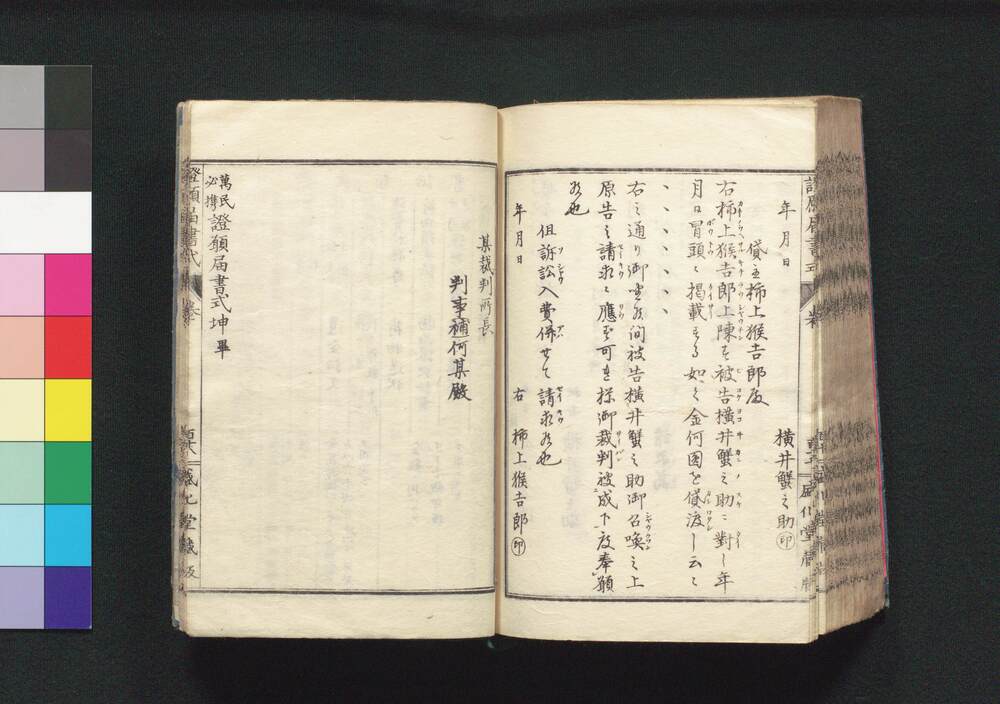 年月日
横井蟹之助㊞
貸主柿上猴吉郎殿
右柿上猴吉郎上陳ス被告横井蟹之助ニ對シ年
月日冒頭ニ掲載スル如ク金何圓ヲ貸渡シ云々
、、、、、、
右之通リ御座候間被告横井蟹之助御召喚之上
原告之請求ニ應ズ可キ様御裁判被成下度奉願
候也
但訴訟入費併セテ請求候也
年月日
右 柿上猴吉郎㊞
某裁判所長
判事補何某殿
萬民必携 證願届書式坤畢
證願届書式
盛化堂藏版